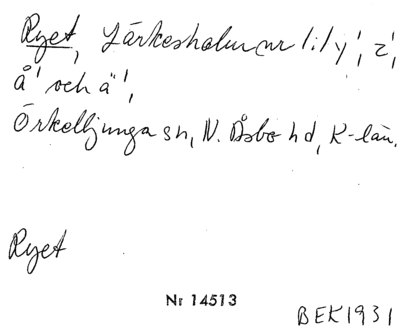 Ryet, Lärkesholm nr 1:1 y¹, z¹,
å¹ och ä¹,
Örkelljunga sn, N. Åsbo hd, K-län.
Ryet
Nr 14513
BEK 1931